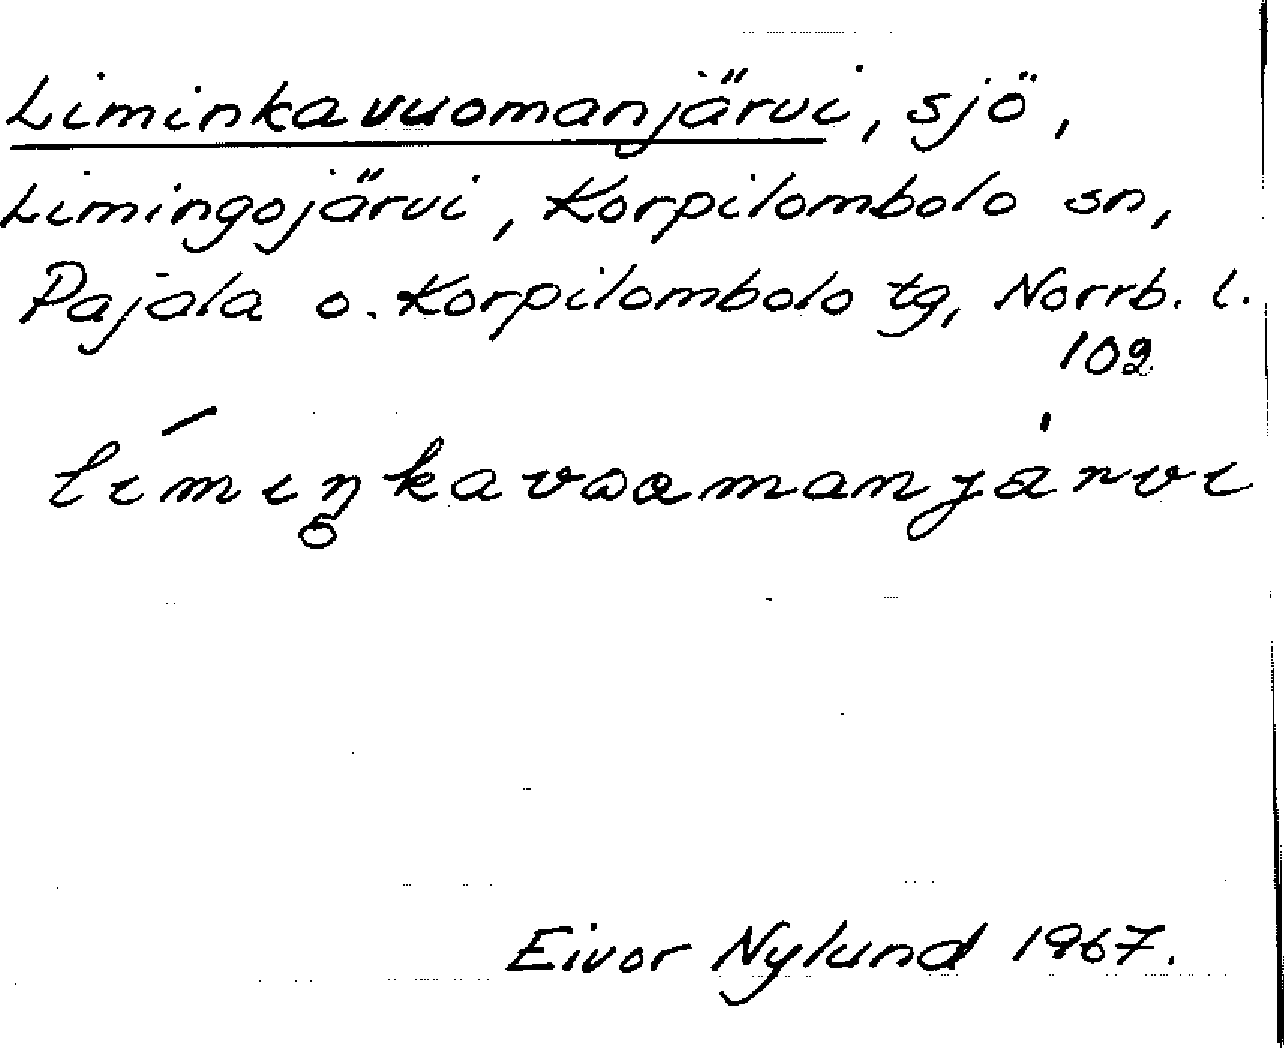 Liminkavuomanjärvi, sjö,
Limingojärvi, Korpilombolo sn,
Pajala o. Korpilombolo tg, Norrb. l.
102
limiŋkavuomanjärvi
Eivor Nylund 1967.